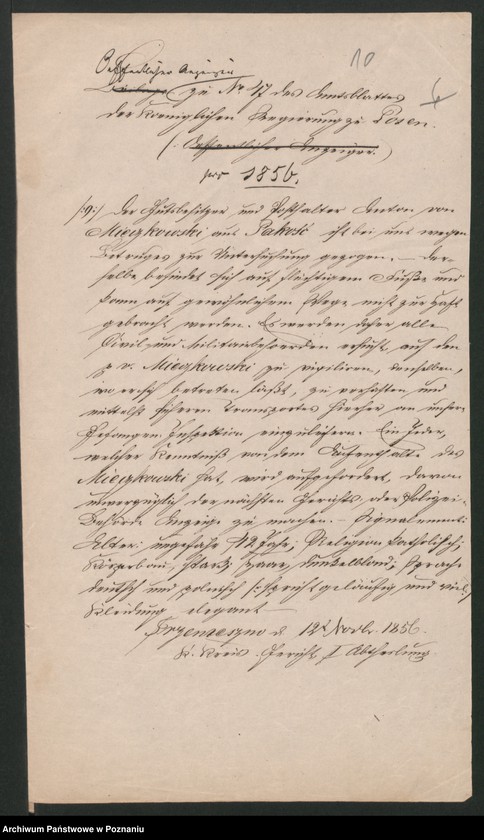 10
Oeffentlicher Anzeiger
zu Nr 47 des Amtsblattes
der Koeniglichen Regierung zu Posen.
(: Oeffentlicher Anzeiger. :)
pro 1856.
/:9:/ Der Gutsbesitzer und Posthalter Anton von
Mieczkowski aus Pakość ist bei uns wegen
Betruges zur Untersuchung gezogen. — Der-
selbe befindet sich auf flüchtigem Fuße und
kann auf gewöhnlichem Wege nicht zur Haft
gebracht werden. Es werden daher alle
Civil- und Militairbehoerden ersucht, auf den
p v. Mieczkowski zu vigiliren, denselben,
wo er sich betreten läßt, zu verhaften und
mittelst sichern Transportes hierher an unsere
Gefangen-Inspektion einzuliefern. Ein Jeder,
welcher Kenntniß von dem Aufenthalte des
Mieczkowski hat, wird aufgefordert, davon
unverzüglich der nächsten Gerichts- oder Polizei-
Behörde Anzeige zu machen. — Signalement:
Alter: ungefähr 42 Jahr; Religion katholisch;
Körperbau, stark; Haare, dunkelblond; Sprache
deutsch und polnisch /: spricht geläufig und viel :/
Kleidung elegant —
Trzemeszno d 12t Novbr. 1856.
K. Kreis-Gericht, I Abtheilung.
Archiwum Państwowe w Poznaniu